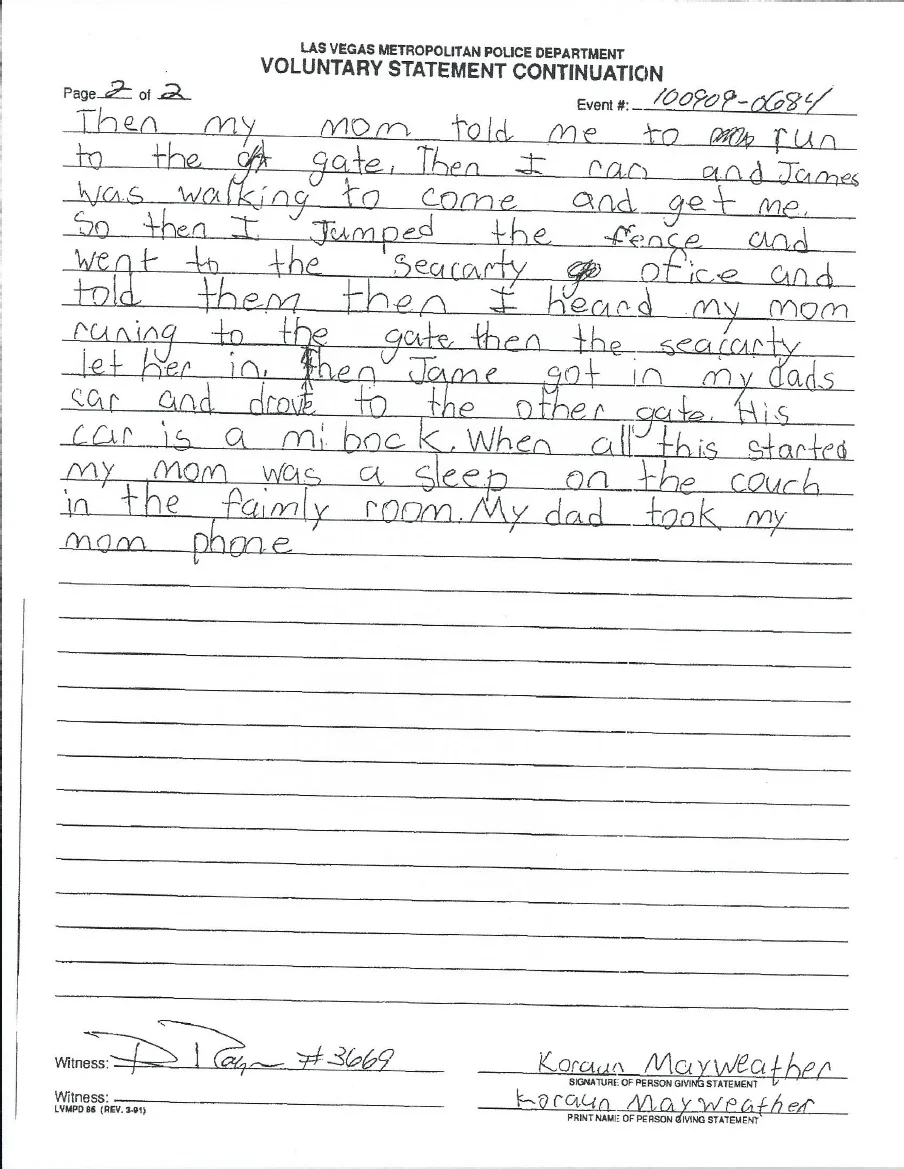 LAS VEGAS METROPOLITAN POLICE DEPARTMENT
VOLUNTARY STATEMENT CONTINUATION
Page 2 of 2
Event #: 100909-0684
Then my mom told me to run
to the gate. Then I ran and James
was walking to come and get me.
So then I Jumped the fence and
went to the seacarty ofice and
told them then I heard my mom
runing to the gate then the seacarty
let her in. Then Jame got in my dads
car and drove to the other gate. His
car is a mi bock. When all this started
my mom was a sleep on the couch
in the faimly room. My dad took my
mom phone
Witness: #3669
Koraun Mayweather
SIGNATURE OF PERSON GIVING STATEMENT
Witness:
Koraun Mayweather
LVMPD 86 (REV. 3-91)
PRINT NAME OF PERSON GIVING STATEMENT